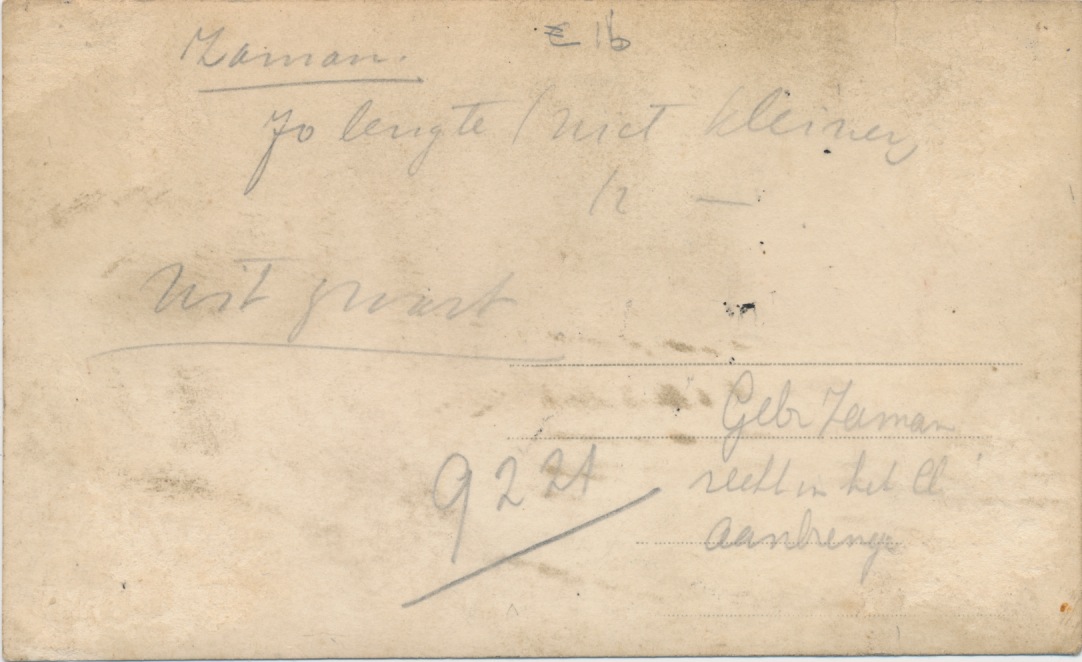 Zaman.
£ 16
70 lengte / niet kleiner
12 —
niet zwart
Gebr Zaman
9221
recht in het cl
aanbrenge